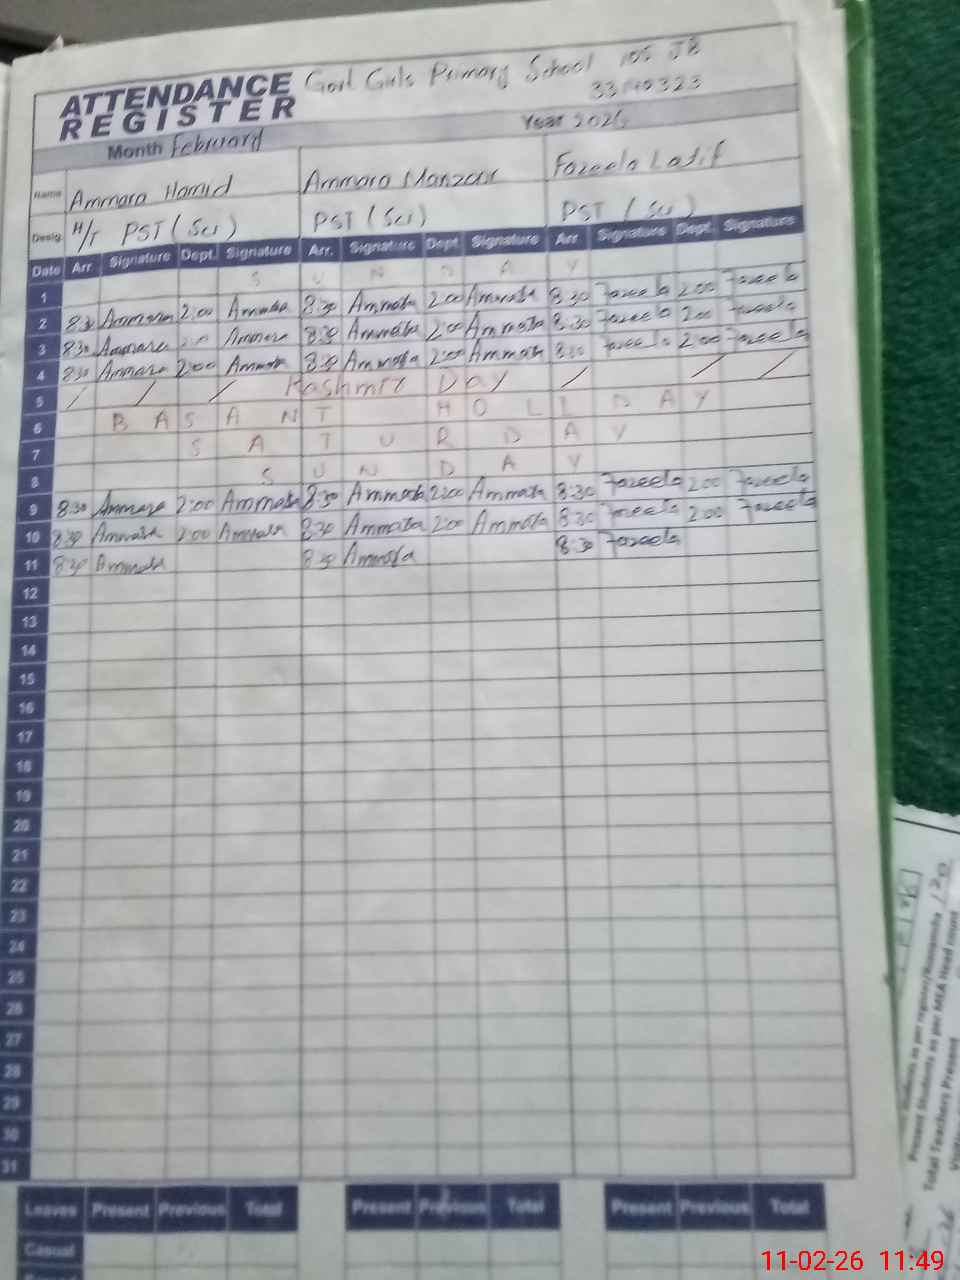 ATTENDANCE REGISTER
Govt Girls Primary School 105 JB
Year 2026
Month February
Name Ammara Hamid Ammara Manzoor Fazeela Latif
Desig. H/T PST (Sci) PST (Sci) PST (Sci)
Date Arr. Signature Dept. Signature Arr. Signature Dept. Signature Arr. Signature Dept. Signature
1 S U N D A Y
2 8:30 Ammara 2:00 Ammara 8:30 Ammara 2:00 Ammara 8:30 Fazeela 2:00 Fazeela
3 8:30 Ammara 2:00 Ammara 8:30 Ammara 2:00 Ammara 8:30 Fazeela 2:00 Fazeela
4 8:30 Ammara 2:00 Ammara 8:30 Ammara 2:00 Ammara 8:30 Fazeela 2:00 Fazeela
5 / / / Kashmir Day / / /
6 B A S A N T H O L I D A Y
7 S A T U R D A Y
8 S U N D A Y
9 8:30 Ammara 2:00 Ammara 8:30 Ammara 2:00 Ammara 8:30 Fazeela 2:00 Fazeela
10 8:30 Ammara 2:00 Ammara 8:30 Ammara 2:00 Ammara 8:30 Fazeela 2:00 Fazeela
11 8:30 Ammara 8:30 Ammara 8:30 Fazeela
12
13
14
15
16
17
18
19
20
21
22
23
24
25
26
27
28
29
30
31
Leaves Present Previous Total Present Previous Total Present Previous Total
Casual
Total Teachers Present
11-02-26 11:49